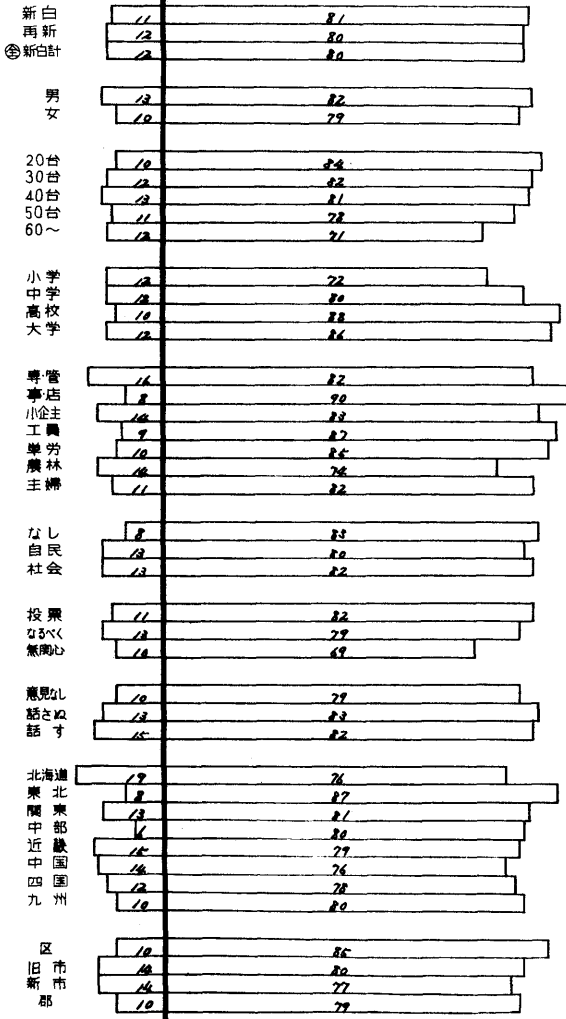 新白 11 81
再新 12 80
㊎新白計 12 80
男 13 82
女 10 79
20台 10 84
30台 12 82
40台 13 81
50台 11 78
60～ 12 71
小学 12 72
中学 12 80
高校 10 88
大学 12 86
専・管 16 82
事・店 8 90
小企主 14 83
工員 9 87
単労 10 85
農林 14 74
主婦 11 82
なし 8 83
自民 13 80
社会 13 82
投票 11 82
なるべく 13 79
無関心 10 69
意見なし 10 79
話さぬ 13 83
話す 15 82
北海道 19 76
東北 8 87
関東 13 81
中部 6 80
近畿 15 79
中国 14 76
四国 12 78
九州 10 80
区 10 85
旧市 14 80
新市 14 77
郡 10 79